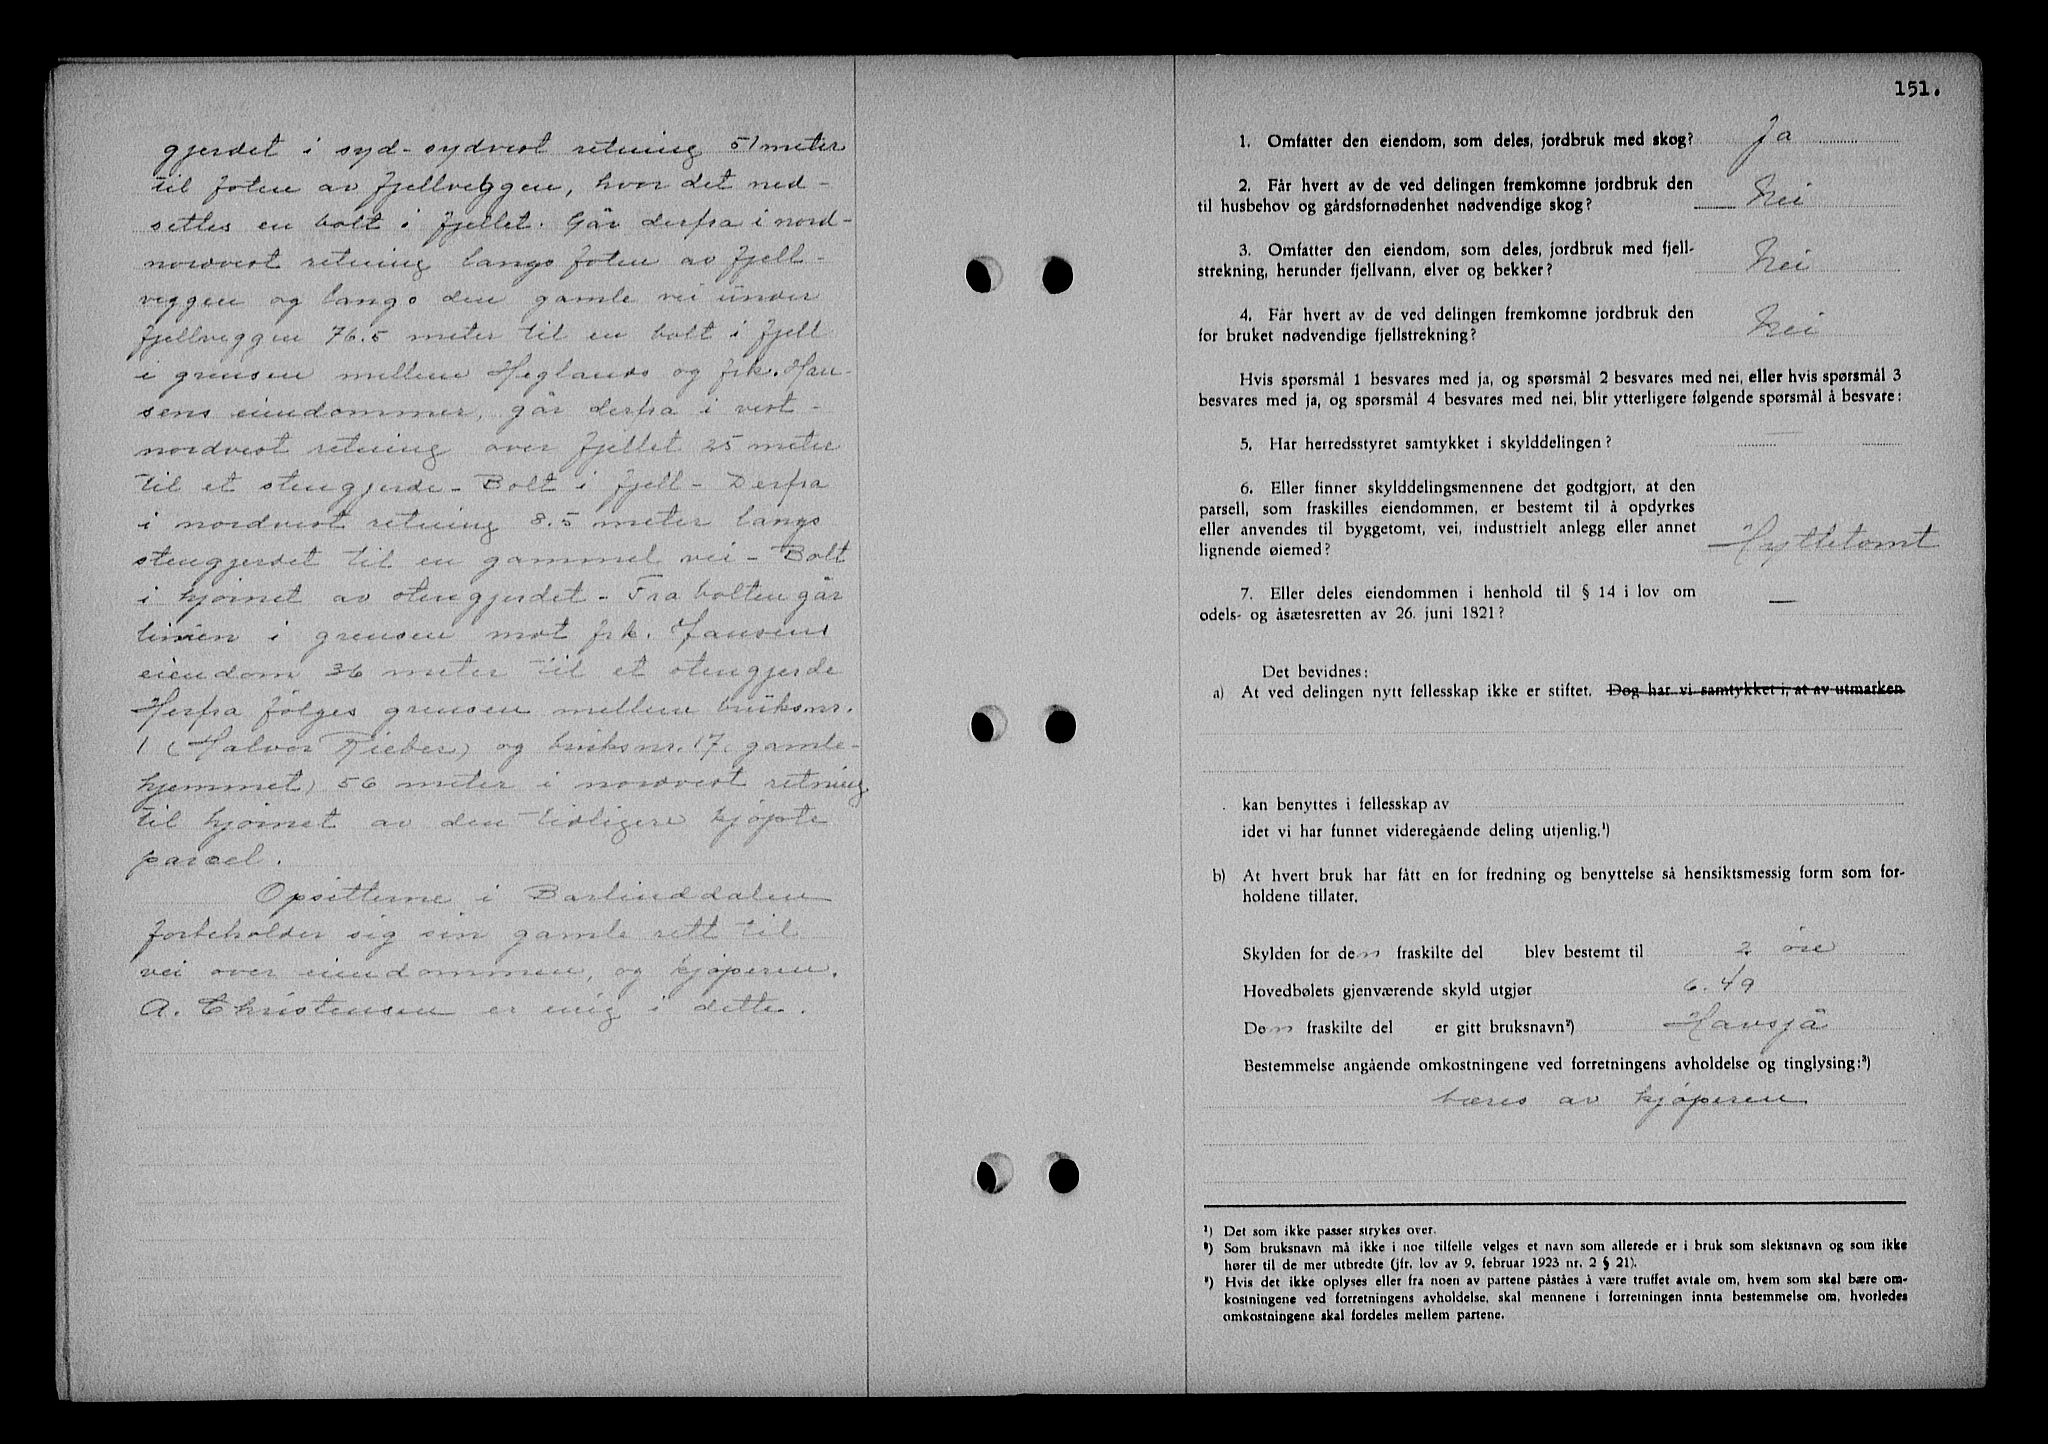 gjerdet i syd-sydvest retning 51 meter
til foten av fjellveggen, hvor det ned-
settes en bolt i fjellet. Går derfra i nord-
nordvest retning langs foten av fjell-
veggen og langs den gamle vei under
fjellveggen 76.5 meter til en bolt i fjell
i grensen mellem Heglands og frk. Han-
sens eiendommer, går derfra i vest-
nordvest retning over fjellet 25 meter
til et stengjerde - Bolt i fjell - Derfra
i nordvest retning 8.5 meter langs
stengjerdet til en gammel vei - Bolt
i hjørnet av stengjerdet - Fra bolten går
linien i grensen mot frk. Jansens
eiendom 36 meter til et stengjerde
Herfra følges grensen mellem bruksnr.
1 (Halvor Rieber) og bruksnr. 17. gamle-
hjemmet) 56 meter i nordvest retning
til hjørnet av den tidligere kjøpte
parsel.
Opsitterne i Barlinddalen
forbeholder sig sin gamle rett til
vei over eiendommen, og kjøperen.
A. Christensen er enig i dette.
151.
1. Omfatter den eiendom, som deles, jordbruk med skog? Ja
2. Får hvert av de ved delingen fremkomne jordbruk den
til husbehov og gårdsfornødenhet nødvendige skog? Nei
3. Omfatter den eiendom, som deles, jordbruk med fjell-
strekning, herunder fjellvann, elver og bekker? Nei
4. Får hvert av de ved delingen fremkomne jordbruk den
for bruket nødvendige fjellstrekning? Nei
Hvis spørsmål 1 besvares med ja, og spørsmål 2 besvares med nei, eller hvis spørsmål 3
besvares med ja, og spørsmål 4 besvares med nei, blir ytterligere følgende spørsmål å besvare:
5. Har herredsstyret samtykket i skylddelingen? —
6. Eller finner skylddelingsmennene det godtgjort, at den
parsell, som fraskilles eiendommen, er bestemt til å opdyrkes
eller anvendes til byggetomt, vei, industrielt anlegg eller annet
lignende øiemed? Hyttetomt
7. Eller deles eiendommen i henhold til § 14 i lov om
odels- og åsætesretten av 26. juni 1821? —
Det bevidnes:
a) At ved delingen nytt fellesskap ikke er stiftet. Dog har vi samtykket i, at av utmarken
kan benyttes i fellesskap av
idet vi har funnet videregående deling utjenlig.¹)
b) At hvert bruk har fått en for fredning og benyttelse så hensiktsmessig form som for-
holdene tillater.
Skylden for den fraskilte del blev bestemt til 2 øre
Hovedbølets gjenværende skyld utgjør 6.49
Den fraskilte del er gitt bruksnavn²) Havsjå
Bestemmelse angående omkostningene ved forretningens avholdelse og tinglysing:³)
bæres av kjøperen
¹) Det som ikke passer strykes over.
²) Som bruksnavn må ikke i noe tilfelle velges et navn som allerede er i bruk som slektsnavn og som ikke
hører til de mer utbredte (jfr. lov av 9. februar 1923 nr. 2 § 21).
³) Hvis det ikke oplyses eller fra noen av partene påståes å være truffet avtale om, hvem som skal bære om-
kostningene ved forretningens avholdelse, skal mennene i forretningen innta bestemmelse om, hvorledes
omkostningene skal fordeles mellem partene.